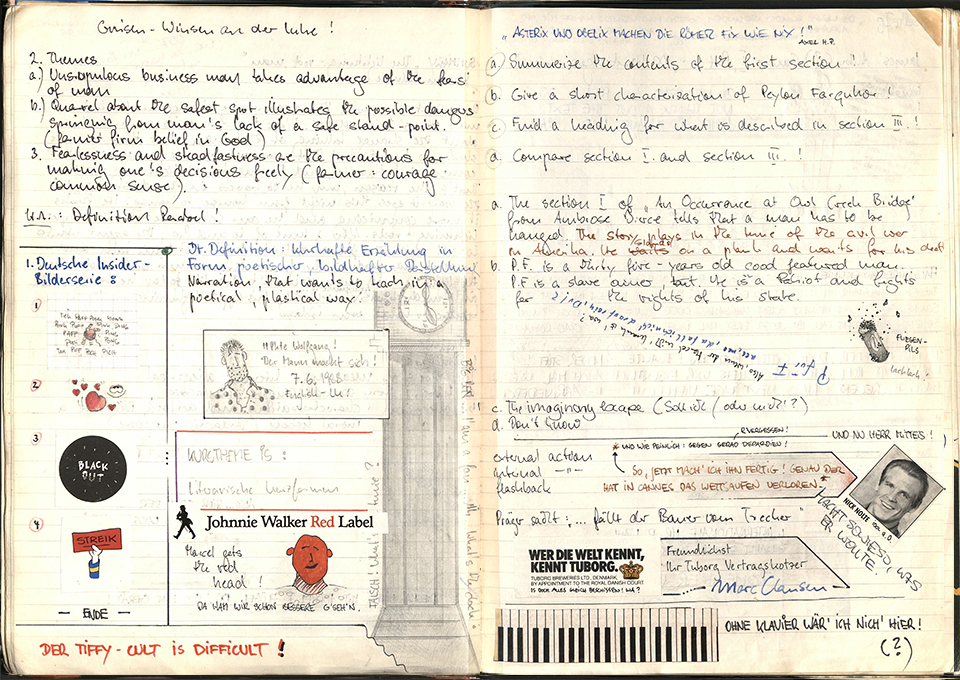 2. Themes
a.) Unscrupulous business man takes advantage of the fears
of man
b.) Quarrel about the safest spot illustrates the possible dangers
springing from man's lack of a safe stand-point.
(farmer firm belief in God)
3. Fearlessness and steadfastness are the precautions for
making one's decisions freely (farmer: courage
common sense).
Definition Parabel!
1. Deutsche Insider-
Bilderserie:
1
2
3
BLACK
OUT
4
STREIK
- ENDE -
Dt. Definition: Lehrhafte Erzählung in
Form poetischer, bildhafter Darstellung
Narration, that wants to teach in a
poetical, plastical way.
Wolfgang!
Der Mann macht sich!
7.6.1988
KURSTHEMA IS:
Literarische Kurzformen
Johnnie Walker Red Label
Marcel gets
the red
head!
DA HAM WIR SCHON BESSERE G'SEH'N.
DER TIFFY-CULT IS DIFFICULT!
"ASTERIX UND OBELIX MACHEN DIE RÖMER FIX WIE NIX!"
AXEL H.P.
a. Summerize the contents of the first section
b. Give a short characterisation of Peyton Farquhar!
c. Find a heading for what is described in section III!
d. Compare section I. and section III.!
a. The section I of "An Occurrence at Owl Creek Bridge"
from Ambrose Bierce tells that a man has to be
hanged. The story plays in the time of the civil war
in Amerika. He stands on a plank and waits for his death
b. P.F. is a thirty five-years old good featured man.
P.F. is a slave owner, but. He is a Patriot and fights
for the rights of his state.
FLIEGEN-
PILS
c. The imaginary escape (Soll ich / oder nicht?)
d. Don't know
VERGESSEN!
* UND WIE PEINLICH: GEGEN GERAD DEPARDIEU!
UND NU HERR MITTEIS!
external action
internal -"-
flashback
SO, JETZT MACH' ICH IHN FERTIG! GENAU DER
HAT IN CANNES DAS WETTSAUFEN VERLOREN.*
NICK NOLTE
MACHT SOWIESO, WAS
ER WOLLTE.
"... fällt der Bauer vom Trecker"
WER DIE WELT KENNT,
KENNT TUBORG.
TUBORG BREWERIES LTD., DENMARK,
BY APPOINTMENT TO THE ROYAL DANISH COURT
IS DOCH ALLES GLEICH BESCHISSEN! WA?
Freundlichst
Ihr Tuborg Vertragskotzer
Marc Clausen
OHNE KLAVIER WÄR' ICH NICH' HIER!
(?)